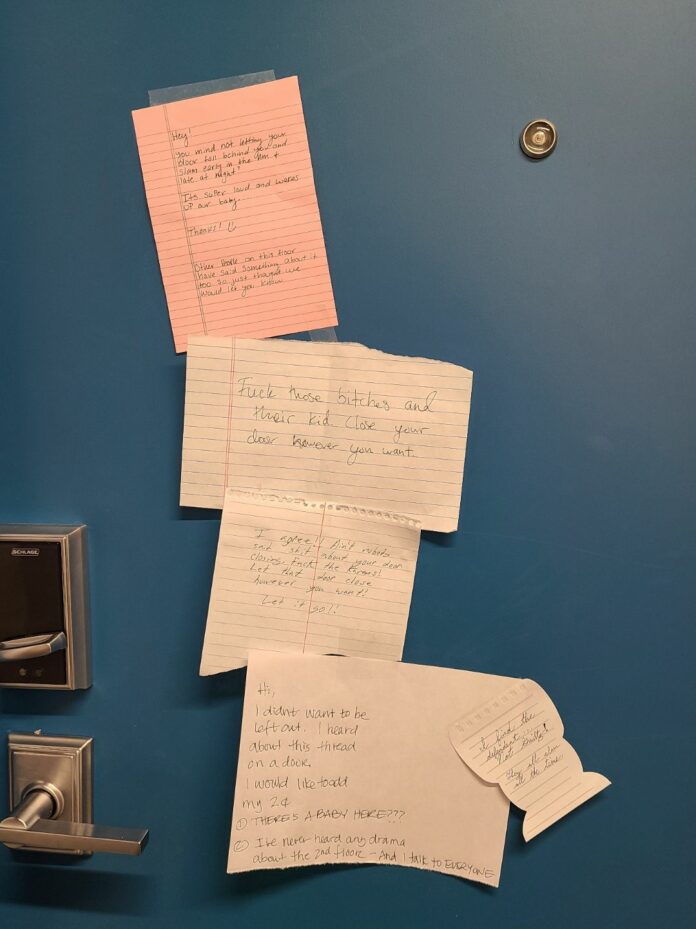 Hey!
You mind not letting your
door fall behind you and
slam early in the AM +
late at night?
It's super loud and wakes
up our baby..
Thanks! :)
Other people on this floor
have said something about it
too so just thought we
would let you know
Fuck those bitches and
their kid. Close your
door however you want.
I agree!! Ain't nobody
said shit about your door
closing. Fuck the
Let that door close
however you want!
Let it go!!
Hi,
I didn't want to be
left out. I heard
about this thread
on a door.
I would like to add
my 2¢
① THERE'S A BABY HERE???
② I've never heard any drama
about the 2nd floor - And I talk to EVERYONE
I find the
defendant
not guilty!
They all slam
all the time.
SCHLAGE